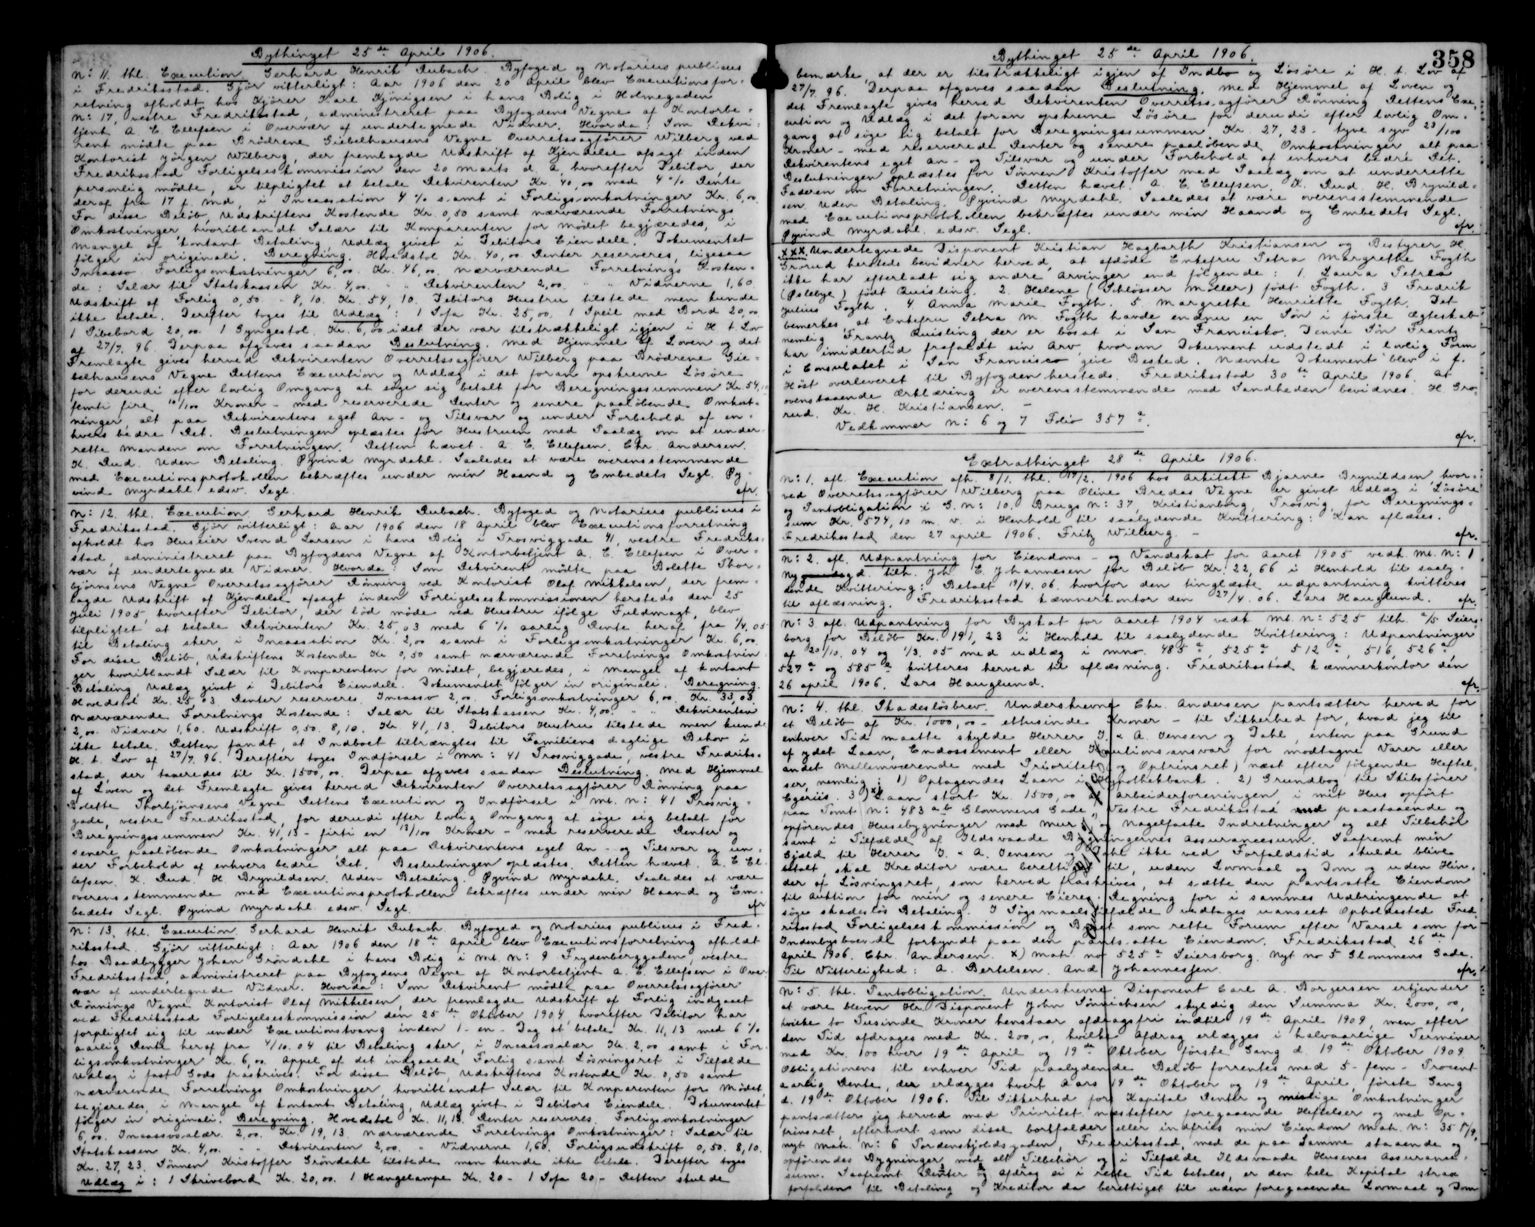 Bythinget 25de April 1906.
N: 11. thl. Execution. Gerhard Henrik Dubach. Byfoged og Notarius publicus
i Fredriksstad. Gjør vitterligt: Aar 1906 den 20 April blev Executionsfor-
retning afholdt hos Kjører Karl Kjönigsen i hans Bolig i Holmegaden
N: 17, vestre Fredriksstad, administreret paa Byfogdens Vegne af Kontorbe-
tjent A. E. Ellefsen i Overvær af undertegnede Vidner. Hvorda: Som Rekvi-
rent mödte paa Brödrene Giebelhausens Vegne Overretssagförer Wilberg ved
Kontorist Jörgen Wilberg, der fremlagde Udskrift af Kjendelse afsagt inden
Fredriksstad Forligelseskommission den 20 Marts d. A. hvorefter Debitor, der
personlig mödte, er tilpligtet at betale Rekvirenten Kr. 40,00 med 4 % Rente
deraf fra 17 f. Md., i Incassation 4 % samt i Forligsomkostninger Kr. 6,00.
For disse Belöb, Udskriftens Kostende Kr. 0,50 samt nærværende Forretnings
Omkostninger hvoriblandt Salær til Komparenten for Mödet begjæredes, i
Mangel af kontant Betaling, Udlæg givet i Debitors Eiendele. Dokumentet
fölger in originali. Beregning. Hovedstol Kr. 40,00 Renter reserveres, ligesaa
Incasso Forligsomkostninger 6,00. Kr. 46,00. Nærværende Forretnings Kosten-
de: Salær til Statskassen Kr. 4,00 " " Rekvirenten 2,00 " " Vidnerne 1,60
Udskrift af Forlig 0,50 - 8,10. Kr. 54,10. Debitors Hustru tilstede men kunde
ikke betale. Derefter toges til Udlæg: 1 Sofa Kr. 25,00. 1 Speil med Bord 20,00
1 Pibebord 20,00 1 Gyngestol Kr. 6,00 idet der var tilstrækkeligt igjen i H. t. Lov
af 27/7. 96. Derpaa afgaves saadan Beslutning. Med Hjemmel af Loven og det
Fremlagte gives herved Rekvirenten Overretssagförer Wilberg paa Brödrene Gie-
belhausens Vegne Rettens Execution og Udlæg i det foran opskrevne Lösöre
for derudi efter lovlig Omgang at söge sig betalt for Beregningssummen Kr. 54,10
femti fire 10/100 Kroner - med reserverede Renter og senere paalöbende Omkost-
ninger, alt paa Rekvirentens eget An- og Tilsvar og under Forbehold af en-
hvers bedre Ret. Beslutningen oplæstes for Hustruen med Paalæg om at under-
rette Manden om Forretningen. Retten hævet. A. E. Ellefsen. Chr. Andersen.
K. Rud. Uden Betaling. Øyvind Myrdahl. Saaledes at være overensstemmende
med Executionsprotokollen bekræftes under min Haand og Embedets Segl. Øy-
vind Myrdahl edsv. Segl. efr.
N: 12. thl. Execution. Gerhard Henrik Dubach. Byfoged og Notarius publicus i
Fredriksstad. Gjör vitterligt: Aar 1906 den 18 April blev Executionsforretning
afholdt hos Huseier Svend Larsen i hans Bolig i Trosviggade 41, vestre Fredriks-
stad, administreret paa Byfogdens Vegne af Kontorbetjent A. E. Ellefsen i Over-
vær af undertegnede Vidner. Hvorda: Som Rekvirent mödte paa Bolette Thor-
björnsens Vegne Overretssagförer Rönning ved Kontorist Olaf Mikkelsen, der frem-
lagde Udskrift af Kjendelse afsagt inden Forligelseskommissionen hersteds den 25
Juli 1905, hvorefter Debitor, der lod möde ved Hustru ifölge Fuldmagt, blev
tilpligtet at betale Rekvirenten Kr. 25,03 med 6 % aarlig Rente heraf fra 1/4, 05
til Betaling sker, i Incassation Kr. 2,00 samt i Forligsomkostninger Kr. 6,00.
For disse Belöb, Udskriftens Kostende Kr. 0,50 samt nærværende Forretnings Omkostnin-
ger hvoriblandt Salær til Komparenten for Mödet, begjæredes, i Mangel af kontant
Betaling, Udlæg givet i Debitors Eiendele. Dokumentet fölger in originali. Beregning.
Hovedstol Kr. 25,03 Renter reserveres. Incasso 2,00. Forligsomkostninger 6,00 Kr. 33,03
Nærværende Forretnings Kostende: Salær til Statskassen Kr. 4,00. " - Rekvirenten
2,00. Vidner 1,60. Udskrift 0,50. 8,10. Kr. 41,13. Debitors Hustru tilstede men kunde
ikke betale. Retten fandt, at Indboet tiltrængtes til Familiens daglige Behov i
H. t. Lov af 27/7. 96. Derefter toges Indförsel i mn: 41 Trosviggade, vestre Fredriks-
stad, der taxeredes til Kr. 1500,00. Derpaa afgaves saadan Beslutning. Med Hjemmel
af Loven og det Fremlagte gives herved Rekvirenten Overretssagförer Rönning paa
Bolette Thorbjörnsens Vegne Rettens Execution og Indförsel i mt. n: 41 Trosvig-
gade, vestre Fredriksstad, for derudi efter lovlig Omgang at söge sig betalt for
Beregningssummen Kr. 41,13 - firti en 13/100 Kroner - med reserverede Renter og
senere paalöbende Omkostninger alt paa Rekvirentens eget An- og Tilsvar og un-
der Forbehold af enhvers bedre Ret. Beslutningen oplæstes. Retten hævet. A. E. El-
lefsen. K. Rud. H. Brynildsen. Uden Betaling. Øyvind Myrdahl. Saaledes at være
overensstemmende med Executionsprotokollen bekræftes under min Haand og Em-
bedets Segl. Øyvind Myrdahl edsv. Segl. efr
N: 13. thl. Execution. Gerhard Henrik Dubach. Byfoged og Notarius publicus i Fred-
riksstad. Gjör vitterligt: Aar 1906 den 18de April blev Executionsforretning afholdt
hos Baadbygger Johan Gröndahl i hans Bolig i mt. n: 9 Frydenberggaden vestre
Fredriksstad administreret paa Byfogdens Vegne af Kontorbetjent A. E. Ellefsen i Over-
vær af undertegnede Vidner. Hvorda: Som Rekvirent mödte paa Overretssagförer
Rönnings Vegne Kontorist Olaf Mikkelsen, der fremlagde Udskrift af Forlig indgaaet
ved Fredriksstad Forligelseskommission den 25de Oktober 1904 hvorefter Debitor har
forpligtet sig til under Executionstvang inden 1 - en - Dag at betale Kr. 11,13 med 6 %
aarlig Rente heraf fra 4/10. 04 til Betaling sker, i Incassosalær Kr. 2,00 samt i For-
ligsomkostninger Kr. 6,00. Appel af det indgaaede Forlig samt Lösningsret i Tilfælde
Udlæg i fast Gods fraskrives. For disse Belöb Udskriftens Kostende Kr. 0,50 samt
nærværende Forretnings Omkostninger, hvoriblandt Salær til Komparenten for Mödet,
begjæredes, i Mangel af kontant Betaling, Udlæg givet i Debitors Eiendele. Dokumentet
fölger in originali. Beregning. Hovedstol Kr. 11,13. Renter reserveres. Forligsomkostninger
6,00. Incassosalær. 2,00. Kr. 19,13. Nærværende Forretnings Omkostninger: Salær til
Statskassen Kr. 4,00. - Rekvirenten 2,00. Vidnerne 1,60. Forligsudskrift 0,50. 8,10.
Kr. 27,23. Sönnen Kristoffer Gröndahl tilstede men kunde ikke betale. Derefter toges
Udlæg i: 1 Skrivebord Kr. 20,00. 1 Hængelampe Kr. 20 - 1 Sofa 20 - Retten skulde
Bythinget 25de April 1906.
358
bemærke, at der er tilstrækkeligt igjen af Indbo og Lösöre i H. t. Lov af
27/7. 96. Derpaa afgaves saadan Beslutning. Med Hjemmel af Loven og
det Fremlagte gives herved Rekvirenten Overretssagförer Rönning Rettens Exe-
cution og Udlæg i det foran opskrevne Lösöre for derudi efter lovlig Om-
gang at söge sig betalt for Beregningssummen Kr. 27,23 - tyve syv 23/100
Kroner - med reserverede Renter og senere paalöbende Omkostninger alt paa
Rekvirentens eget An- og Tilsvar og under Forbehold af enhvers bedre Ret.
Beslutningen oplæstes for Sönnen Kristoffer med Paalæg om at underrette
Faderen om Forretningen. Retten hævet. A. E. Ellefsen. K. Rud. H. Brynild-
sen. Uden Betaling. Øyvind Myrdahl. Saaledes at være overensstemmende
med Executionsprotokollen bekræftes under min Haand og Embedets Segl.
Øyvind Myrdahl. edsv. Segl. efr.
XXX. Undertegnede Disponent Kristian Hagbarth Kristiansen og Bestyrer H.
Grorud hersteds bevidner herved at afdöde Enkefru Petra Margrethe Fogth
ikke har efterladt sig andre Arvinger end fölgende: 1. Laura Petrea
(Öslebye) födt Quisling. 2. Helene (Schlösser Möller) födt Fogth. 3 Fredrik
Julius Fogth. 4 Anna Marie Fogth. 5. Margrethe Henriette Fogth. Det
bemerkes at Enkefru Petra M. Fogth havde endnu en Sön i förste Ægteskab
nemlig Frantz Quisling der er bosat i San Francisko. Denne Sön Frantz
har imidlertid frafaldt sin Arv, hvorom Dokument udstedt i lovlig Form
i Consulatet i San Francisco give Besked. Nævnte Dokument blev i f.
Höst overleveret til Byfogden hersteds. Fredriksstad 30te April 1906. At
ovenstaaende Erklæring er overensstemmende med Sandheden bevidnes. H. Gro-
rud. Kr. H. Kristiansen. -
Vedkommer N: 6 og 7 Folio 357a.
efr.
Extrathinget 28de April 1906.
N: 1. afl. Execution afh. 8/1. thl. 14/2. 1906 hos Arkitekt Bjarne Brynildsen hvor-
ved Overretssagförer Wilberg paa Oline Bredas Vegne er givet Udlæg i Lösöre
og Pantobligation i G. N: 10, Brugs N: 37, Kristianborg, Trosvig, for Beregnings-
sum Kr. 574,10 m. v. i Henhold til saalydende Kvittering: Kan aflæses.
Fredriksstad den 27 April 1906. Fritz Wilberg. - efr.
N: 2. afl. Udpantning for Eiendoms- og Vandskat for Aaret 1905 vedk. Mt. N: 1
tilh. Joh. E. Johannesen for Belöb Kr. 22,66 i Henhold til saaly-
dende Kvittering: Betalt 19/4. 06. hvorfor den tinglæste udpantning kvitteres
til aflæsning. Fredriksstad kæmnerkontor den 27/4. 06. Lars Hauglund. efr.
N: 3 afl. Udpantning for Byskat for Aaret 1904 vedk. Mt. N: 525 tilh. A/S Seiers-
borg for Belöb Kr. 191,23 i Henhold til saalydende Kvittering: Udpantninger
af 20/10. 04 og 1/3. 05 med udlæg i mno. 485a, 525a 512a, 516, 526a,
527a og 585a kvitteres herved til aflæsning. Fredriksstad kæmnerkontor den
26 april 1906. Lars Hauglund. efr.
N: 4. thl. Skadeslösbrev. Underskrevne Chr. Andersen pantsætter herved for
et Belöb af Kr. 1000,00 - ettusinde Kroner - til Sikkerhed for, hvad jeg til
enhver Tid maatte skylde Herrer J. & A. Jensen og Dahl, enten paa Grund
af ydet Laan, Endossement eller Kautionsansvar for modtagne Varer eller
andet Mellemværende med Prioritet og Optrinsret næst efter fölgende Heftel-
ser, nemlig: 1) Optagendes Laan i Hypothekbank. 2) Grundbog til Skibsförer
Egeriis. 3) Laan stort Kr. 1500,00 Arbeiderforeningen i mit Hus opfört
paa Tomt N: 483 ab Glommens Gade, Vestre Fredriksstad med paastaaende og
opförendes Husebygninger med Mur- og Nagelfaste Indretninger og alt Tilbehör
samt i Tilfælde af Ildsvaade Bygningernes Assurancesum. Saafremt min
Gjæld til Herrer J. & A. Jensen og Dahl ikke ved Forfaldstid skulde blive
betalt, skal Kreditor være berettiget til, uden Lovmaal og Dom og uden Hin-
der af Lösningsret, som herved fraskrives, at sætte den pantsatte Eiendom
til Auktion for min og senere Eieres Regning for i sammes Udbringende at
söge skadeslös Betaling. I Sögsmaalstilfælde vedtages uanseet Opholdssted Fred-
riksstad Forligelseskommission og Byret som rette Forum efter Varsel som for
Indenbysboende forkyndt paa den pantsatte Eiendom. Fredriksstad 26de
April 1906. Chr. Andersen. X) Matr. no 525a Seiersborg. Nyt no 5 Glommens Gade.
Til Vitterlighed: A. Bertelsen. And Johannessen. efr.
N: 5. thl. Pantobligation. Underskrevne Disponent Carl A. Borgersen erkjender
at være bleven Hr. Disponent John Sönnichsen skyldig den Summa Kr. 2000,00,
hvilke to Tusinde Kroner henstaar afdragsfri indtil 19de April 1909, men efter
den Tid afdrages med Kr. 200,00, hvilke Afdrag erlægges i halvaarlige Terminer
med Kr. 100 hver 19de April og 19de Oktober förste Gang d. 19de Oktober 1909.
Obligationens til enhver Tid paalydende Belöb forrentes med 5 - fem - Procent
aarlig Rente, der erlægges hvert Aars 19de Oktober og 19de April, förste Gang
d. 19de Oktober 1906. Til Sikkerhed for Kapital Renter og mulige Omkostninger
pantsætter jeg herved med Prioritet næstefter foregaaende Heftelser og med Op-
prinsret, efterhvert som disse bortfalder eller indfries min Eiendom Matr. N: 35
nyt Matr. N: 6 Tordenskjoldsgaden, Fredriksstad, med de paa Samme staaende og
opförendes Bygninger med alt Tilbehör og i Tilfælde Ildsvaade Husenes Assurance-
sum. Saafremt Renter og Afdrag ei i rette Tid betales, er den hele Kapital straa
forfalden til Betaling og Kreditor da berettiget til uden foregaaende Lovmaal og Dom